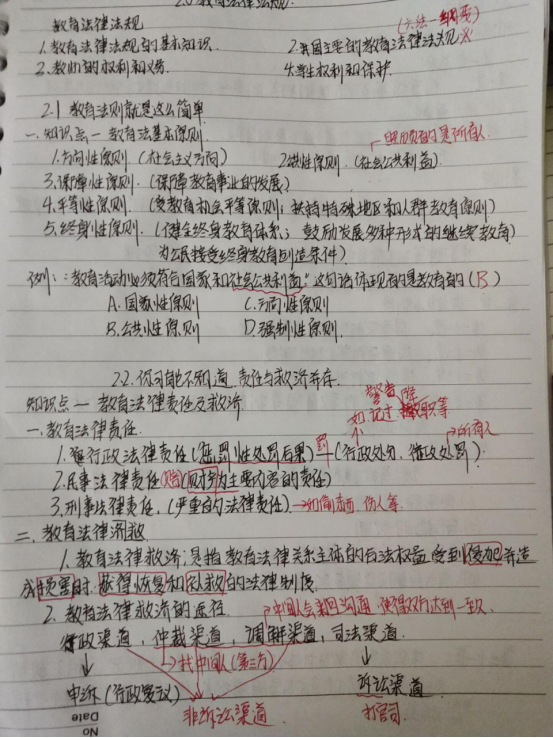 教育法律法规
(六法一纲要)
1.教育法律法规的基本知识. 2.我国主要的教育法律法规
3.教师的权利和义务. 4.学生权利和保护.
2.1 教育法则就是这么简单.
一.知识点一 教育法基本原则.
1.方向性原则 (社会主义方向) 2.公共性原则. (社会公共利益)
3.保障性原则. (保障教育事业的发展)
4.平等性原则. (受教育机会平等原则; 扶持特殊地区和人群教育原则)
5.终身性原则. (健全终身教育体系; 鼓励发展多种形式的继续教育)
为公民接受终身教育创造条件)
例1:"教育活动必须符合国家和社会公共利益."这句话体现的是教育的(B)
A.国家性原则 C.方向性原则
B.公共性原则 D.强制性原则.
2.2.你可能不知道,责任与救济并存.
知识点一 教育法律责任及救济.
一.教育法律责任.
如记过 撤职等
所有人
1.行政法律责任 (惩罚性处罚后果) (行政处分, 行政处罚)
2.民事法律责任 (财产为主要内容的责任)
3.刑事法律责任. (严重的法律责任). →如偷东西, 伤人等.
二.教育法律济救
1.教育法律救济:是指教育法律关系主体的合法权益受到侵犯并造
成损害时.获得恢复和补救的法律制度
2.教育法律救济的途径.
中间人会来回沟通,使得双方达到一致.
行政渠道, 仲裁渠道, 调解渠道, 司法渠道.
→找中间人 (第三方)
申诉 (行政复议) 非诉讼渠道. 诉讼渠道.
打官司.
No
Date